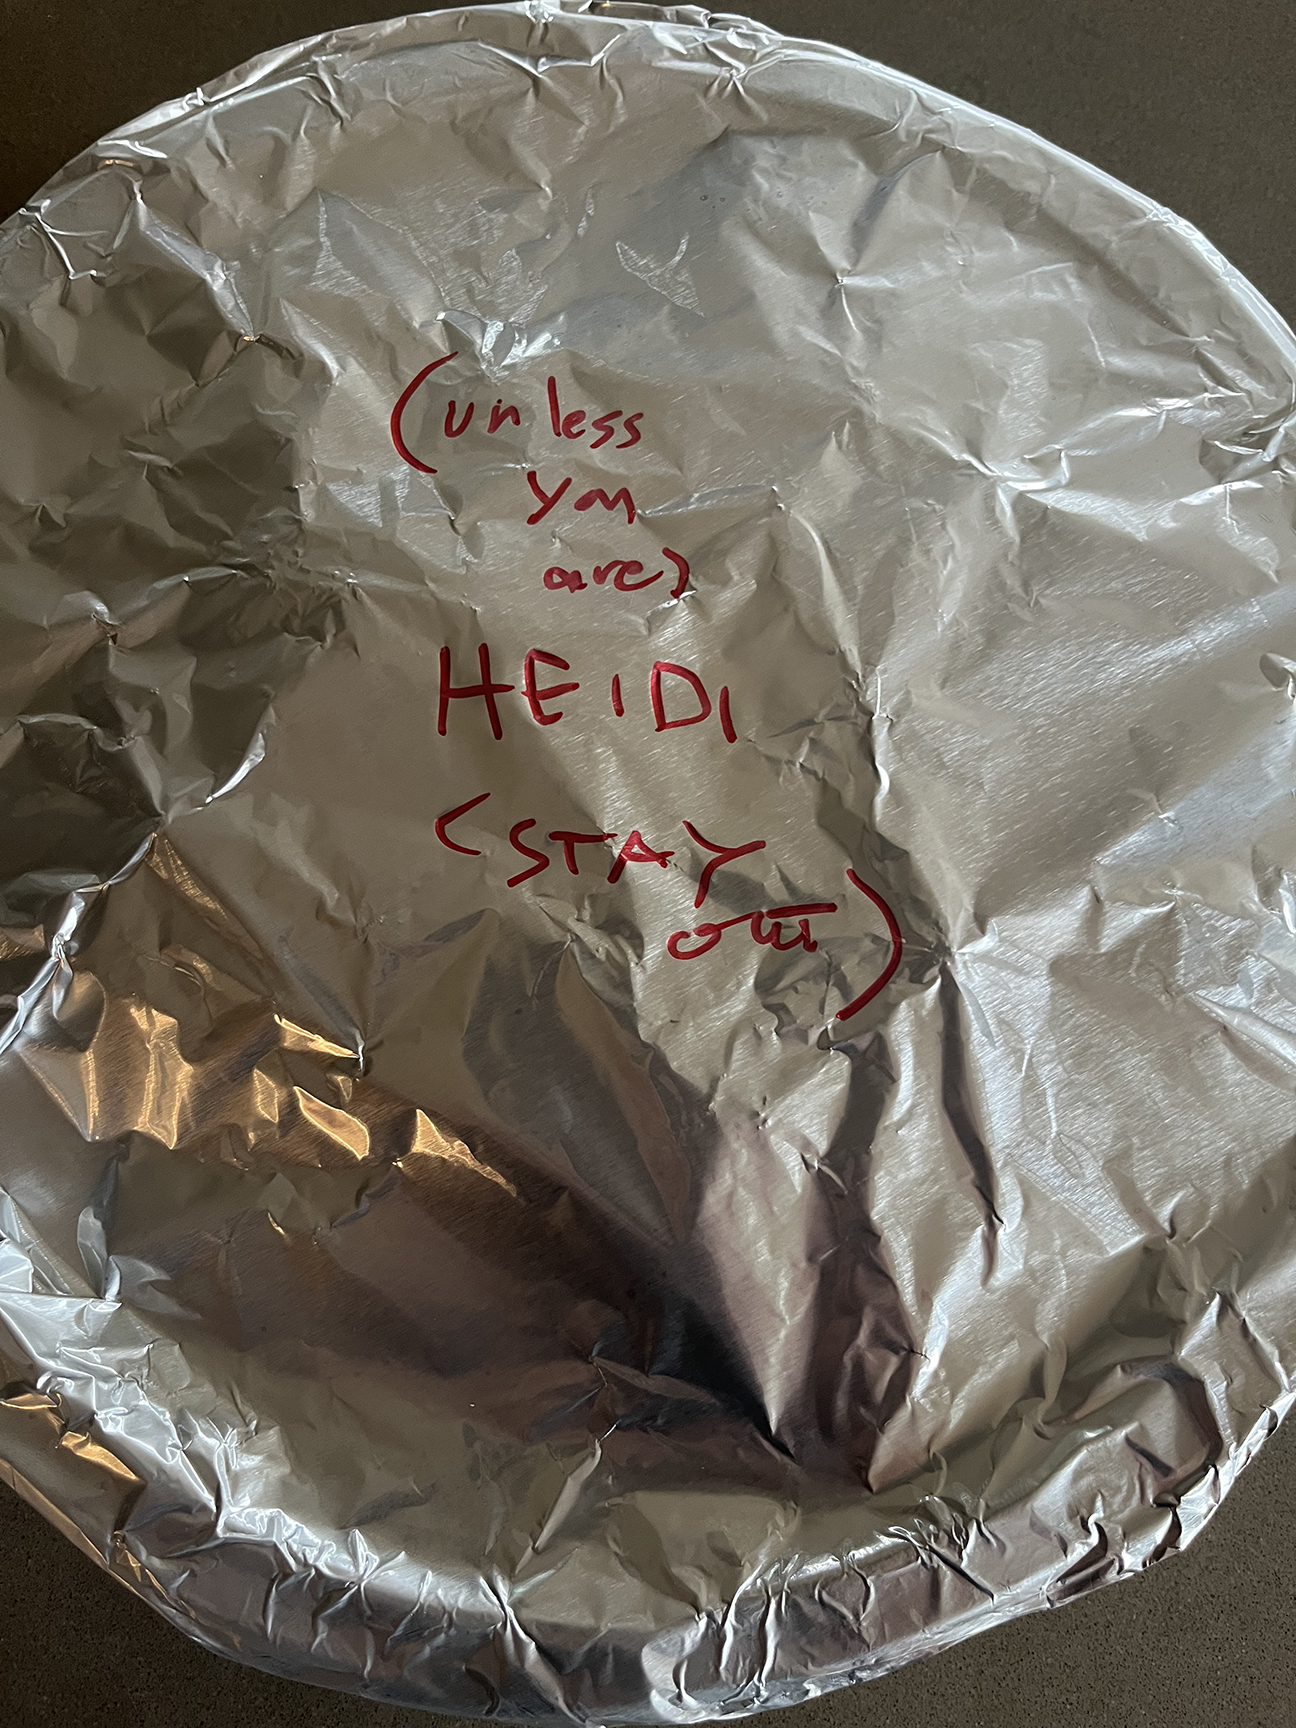 (unless
you
are)
HEIDI
(STAY
OUT)